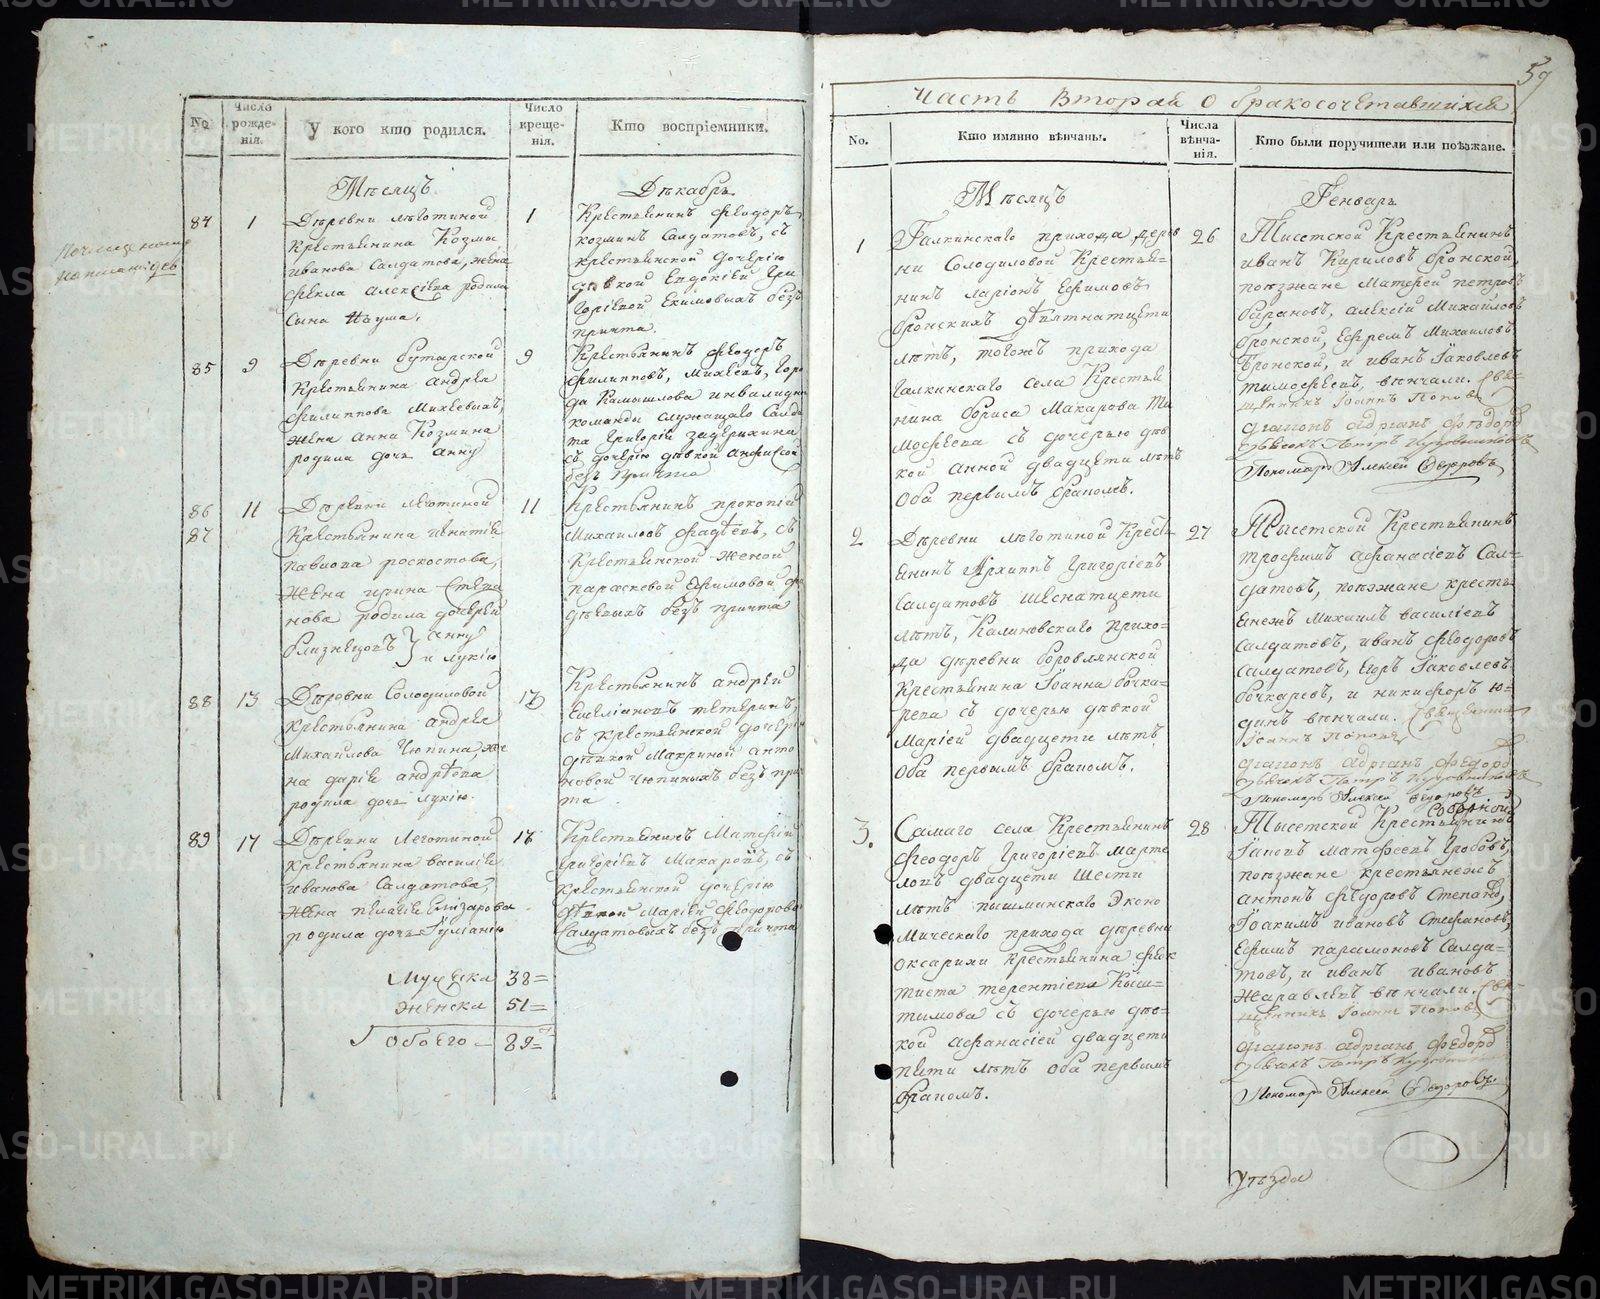 No
Число рожденія.
У кого кто родился.
Число крещенія.
Кто воспріемники.
Мѣсяцъ
Декабрь
84
1
Деревни
Крестьянина Козмы
Иванова Салдатова, жена
Фекла Алексіева родила
сына Наума.
1
Крестьянинъ Феодоръ
Козминъ Салдатовъ, съ
крестьянской дочерію
дѣвкой Евдокіей Гри
горіевой Екимовыхъ безъ
причта.
85
9
Деревни Бутырской
Крестьянина Андрея
Филиппова Михѣевыхъ,
жена Анна Козмина
родила дочь Анну
9
Крестьянинъ Феодоръ
Филипповъ, Михѣевъ, Горо
да Камышлова инвалидно
команды служащаго Салда
та Григорія
съ дочерію дѣвкой Анфисой
безъ причта
86
11
87
Крестьянина Игнатія
Павлова
жена Ирина Степа
нова родила дочерей
близнецовъ } Анну
и Лукію
11
Крестьянинъ Прокопій
Михаиловъ Фадѣевъ, съ
Крестьянской женой
Параскевой Ефимовой Фа
дѣевыхъ безъ причта
88
13
Деревни Солодиловой
Крестьянина Андрея
Михаилова Чюпина, же
на Дарія Андрѣева
родила дочь Лукію.
13
Крестьянинъ Андрей
Емеліановъ Тетеринъ,
съ крестьянской дочерію
дѣвкой Макриной Анто
новой Чюпиныхъ безъ прич
та
89
17
Крестьянина Василія
Иванова Салдатова,
жена Пелагія Елизарова
родила дочь Іуліанію
18
Крестьянинъ Матфей
Григоріевъ Макаровъ, съ
крестьянской дочерію
дѣвкой Маріей Феодоровой
Салдатовыхъ безъ причта
Мужеска 38=
женска 51=
Обоего — 89=
59
Часть Вторая О бракосочетавшихся
No.
Кто имянно вѣнчаны.
Числа вѣнчанія.
Кто были поручители или поѣзжане.
Мѣсяцъ
Генварь
1
Галкинскаго прихода дерев
ни Солодиловой Крестья=
нинъ Ларіонъ Ефимовъ
Бронскихъ девятнатцети
лѣтъ, тогожъ прихода
Галкинскаго села Крестья
нина Бориса Макарова Ти
мофеева съ дочерью дѣв
кой Анной двадцети лѣтъ
Оба первымъ бракомъ.
26
Тысетской Крестьянинъ
Иванъ Кириловъ Бронской,
поѣзжане Матфей Петровъ
Барановъ, Алексій Михайловъ
Бронской, Ефремъ Михайловъ
Бронской, и Иванъ Іаковлевъ
Тимофеевъ, вѣнчали. Свя=
щенникъ Іоаннъ Поповъ
Діаконъ Адріанъ Ѳедоровъ
Дьячокъ Петръ
Пономарь Алексѣй Ѳедоровъ
2
Крест=
янинъ Архиппъ Григоріевъ
Салдатовъ шеснатцети
лѣтъ, Калиновскаго Прихо=
да деревни Боровлянской
Крестьянина Іоанна Бочка=
рева съ дочерью дѣвкой
Маріей двадцети лѣтъ
Оба первымъ бракомъ.
27
Тысетской Крестьянинъ
Трофимъ Афанасіевъ Сал=
датовъ, поѣзжане кресть
янежъ Михаилъ Василіевъ
Салдатовъ, Иванъ Феодоровъ
Салдатовъ, Егоръ Іаковлевъ
Бочкаревъ, и Никифоръ Ю=
динъ вѣнчали. Священникъ
Іоаннъ Поповъ
Діаконъ Адріанъ Ѳедоровъ
Дьячокъ Петръ
Пономарь Алексей Ѳедоровъ
3.
Самаго села Крестьянинъ
Феодоръ Григоріевъ Марте
ловъ двадцети шести
лѣтъ Пышминскаго Эконо
мическаго прихода деревни
Оксарихи Крестьянина Фек
тиста Терентіева Кыш=
тимова съ дочерью дѣв=
кой Афанасіей двадцети
пяти лѣтъ Оба первымъ
бракомъ.
28
Тысетской Крестьянинъ
Іаковъ Матфеевъ Гробовъ,
поѣзжане крестьянежъ
Антонъ Федоровъ
Іоакимъ Ивановъ Стефановъ,
Ефимъ Парамоновъ Салда=
товъ, и Иванъ Ивановъ
Жаравлевъ вѣнчали. Свя=
щенникъ Іоаннъ Поповъ
Діаконъ Адріанъ Ѳедоровъ
Дьячокъ Петръ
Пономарь Алексей Ѳедоровъ
уѣзда
METRIKI.GASO-URAL.RU